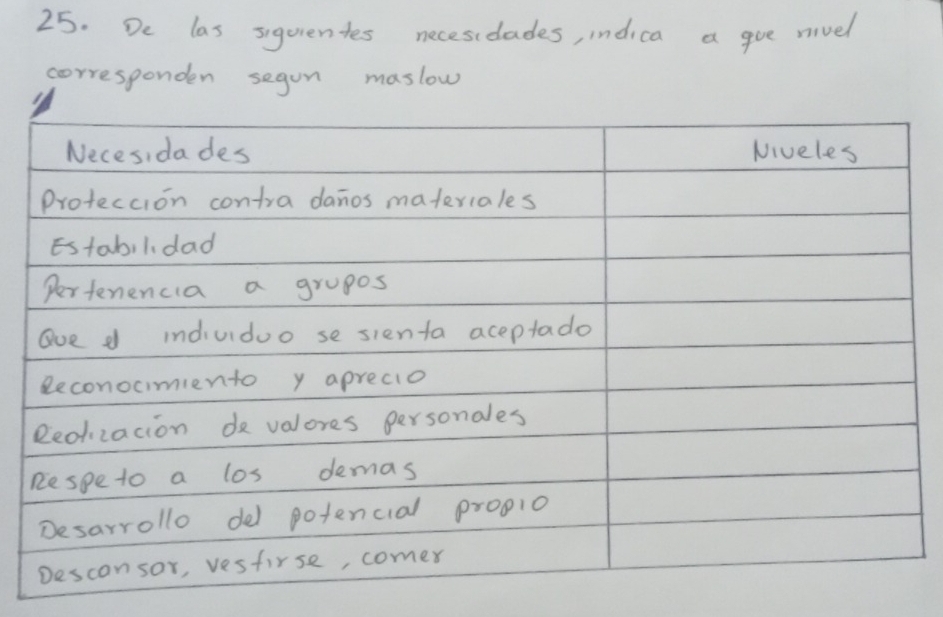 25. De las siguientes necesidades, indica a que nivel
corresponden segun maslow
Necesidades Niveles
Protección contra daños materiales
Estabilidad
Pertenencia a grupos
Que el individuo se sienta aceptado
Reconocimiento y aprecio
Realización de valores personales
Respeto a los demas
Desarrollo del potencial propio
Descansar, vestirse, comer